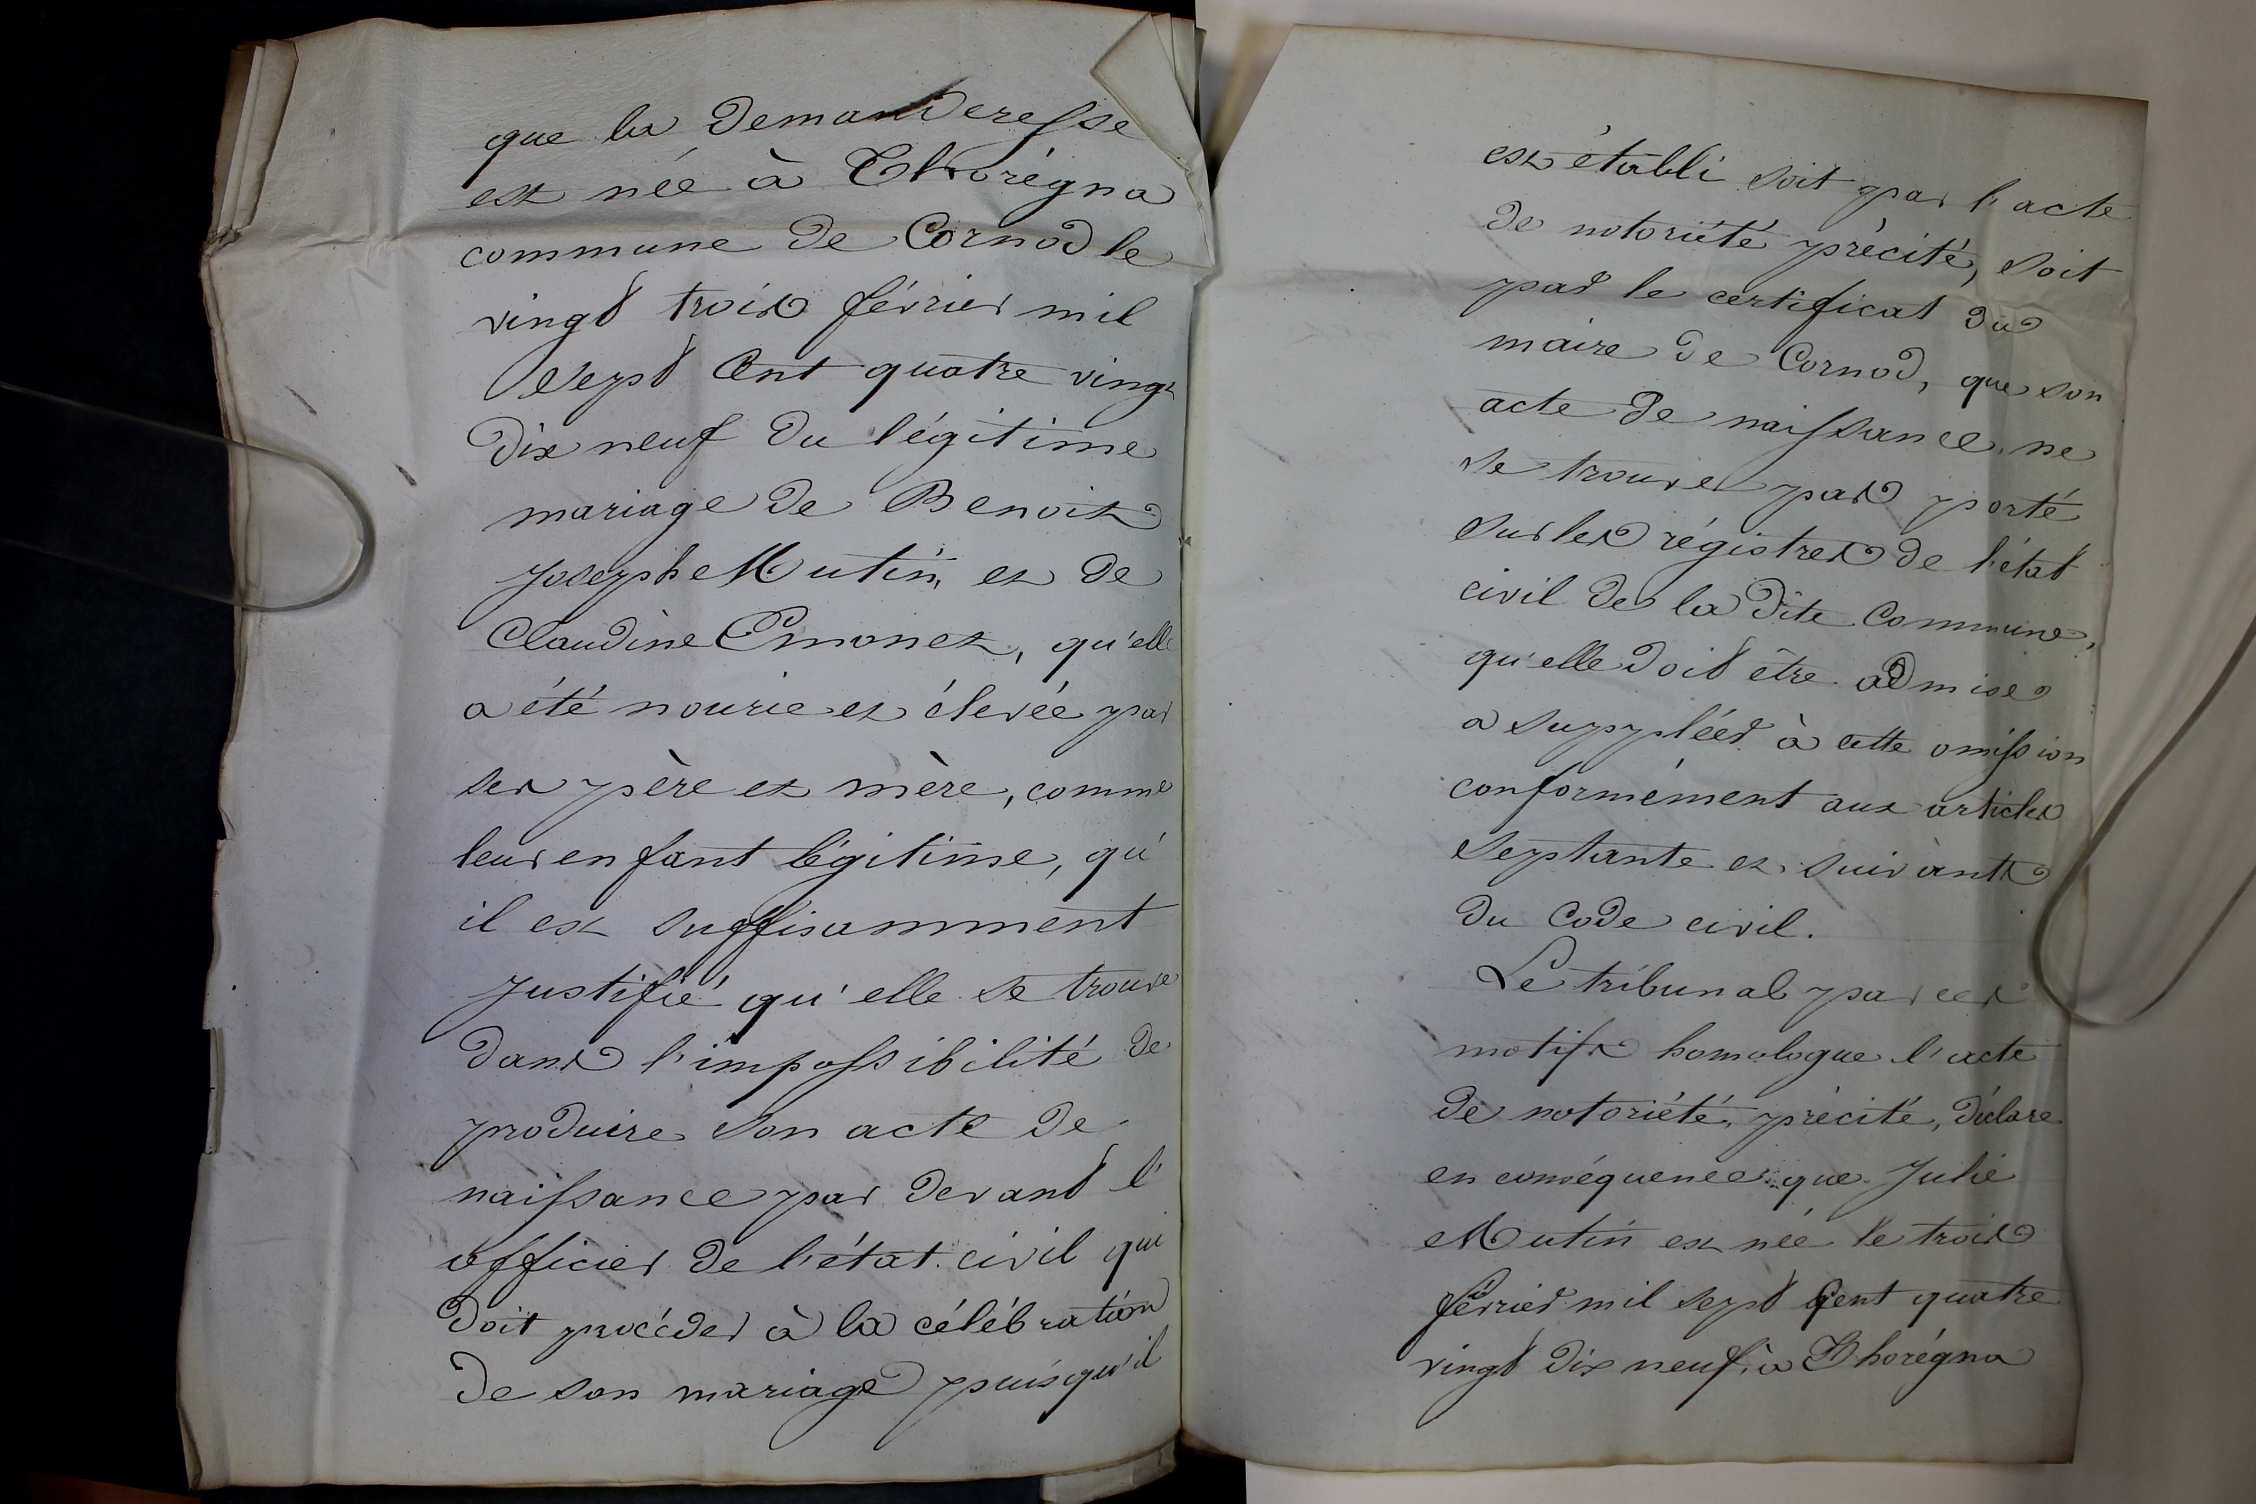 que la demanderesse
est née à Thorégna
commune de Cornod le
vingt trois février mil
sept cent quatre vingt
dix neuf du légitime
mariage de Benoit
Joseph Mutin, et de
Claudine Emonet, qu'elle
a été nourie et élevée par
ses père et mère, comme
leur enfant légitime, qu'
il est suffisamment
justifié qu'elle se trouve
dans l'impossibilité de
produire son acte de
naissance par devant l'
officier de l'état civil qui
doit procéder à la célébration
de son mariage puisqu'il
est établi soit par l'acte
de notoriété précité, soit
par le certificat du
maire de Cornod, que son
acte de naissance ne
se trouve pas porté
sur les régistres de l'état
civil de la dite Commune,
qu'elle doit être admise
a suppléer à cette omission
conformément aux articles
septante et suivants
du Code civil.
Le tribunal par ces
motifs homologue l'acte
de notoriété, précité, déclare
en conséquence que Julie
Mutin est née le trois
février mil sept cent quatre
vingt dix neuf, à Thorégna